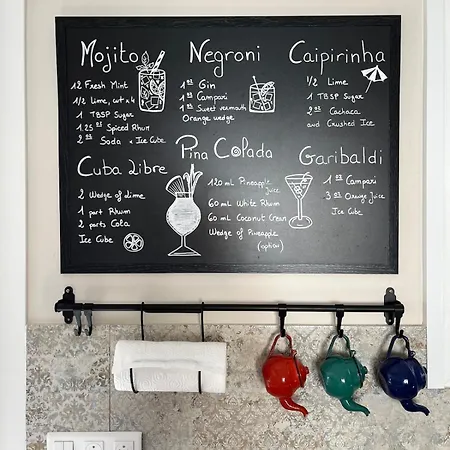 Mojito
12 Fresh Mint
1/2 Lime, cut x 4
1 TBSP Sugar
1.25 oz Spiced Rhum
2 oz Soda & Ice Cube
Negroni
1 oz Gin
1 oz Campari
1 oz Sweet vermouth
Orange wedge
Caipirinha
1/2 Lime
1 TBSP Sugar
2 oz Cachaca
and Crushed Ice
Cuba Libre
2 Wedge of Lime
1 part Rhum
2 parts Cola
Ice Cube
Pina Colada
120 mL Pineapple Juice
60 mL White Rhum
60 mL Coconut Cream
Wedge of Pineapple
(option)
Garibaldi
1 oz Campari
3 oz Orange Juice
Ice Cube